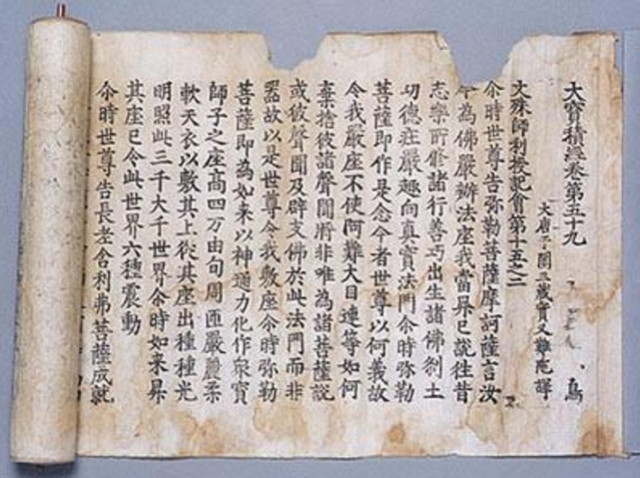 大寶積經卷第五十九
大唐于闐三藏實叉難陁譯
文殊師利授記會第十五之二
尒時世尊告弥勒菩薩摩訶薩言汝
今為佛嚴辦法座我當昇已說往昔
志樂所修諸行善巧出生諸佛剎土
功德莊嚴趣向真實法門尒時弥勒
菩薩即作是念今者世尊以何義故
令我嚴座不使阿難大目連等如何
棄捨彼諸聲聞將非唯為諸菩薩說
或彼聲聞及辟支佛於此法門而非
器故以是世尊令我敷座尒時弥勒
菩薩即為如来以神通力化作衆寳
師子之座高四万由旬周匝嚴麗柔
軟天衣以敷其上從其座出種種光
明照此三千大千世界尒時如来昇
其座已令此世界六種震動
尒時世尊告長老舍利弗菩薩成就